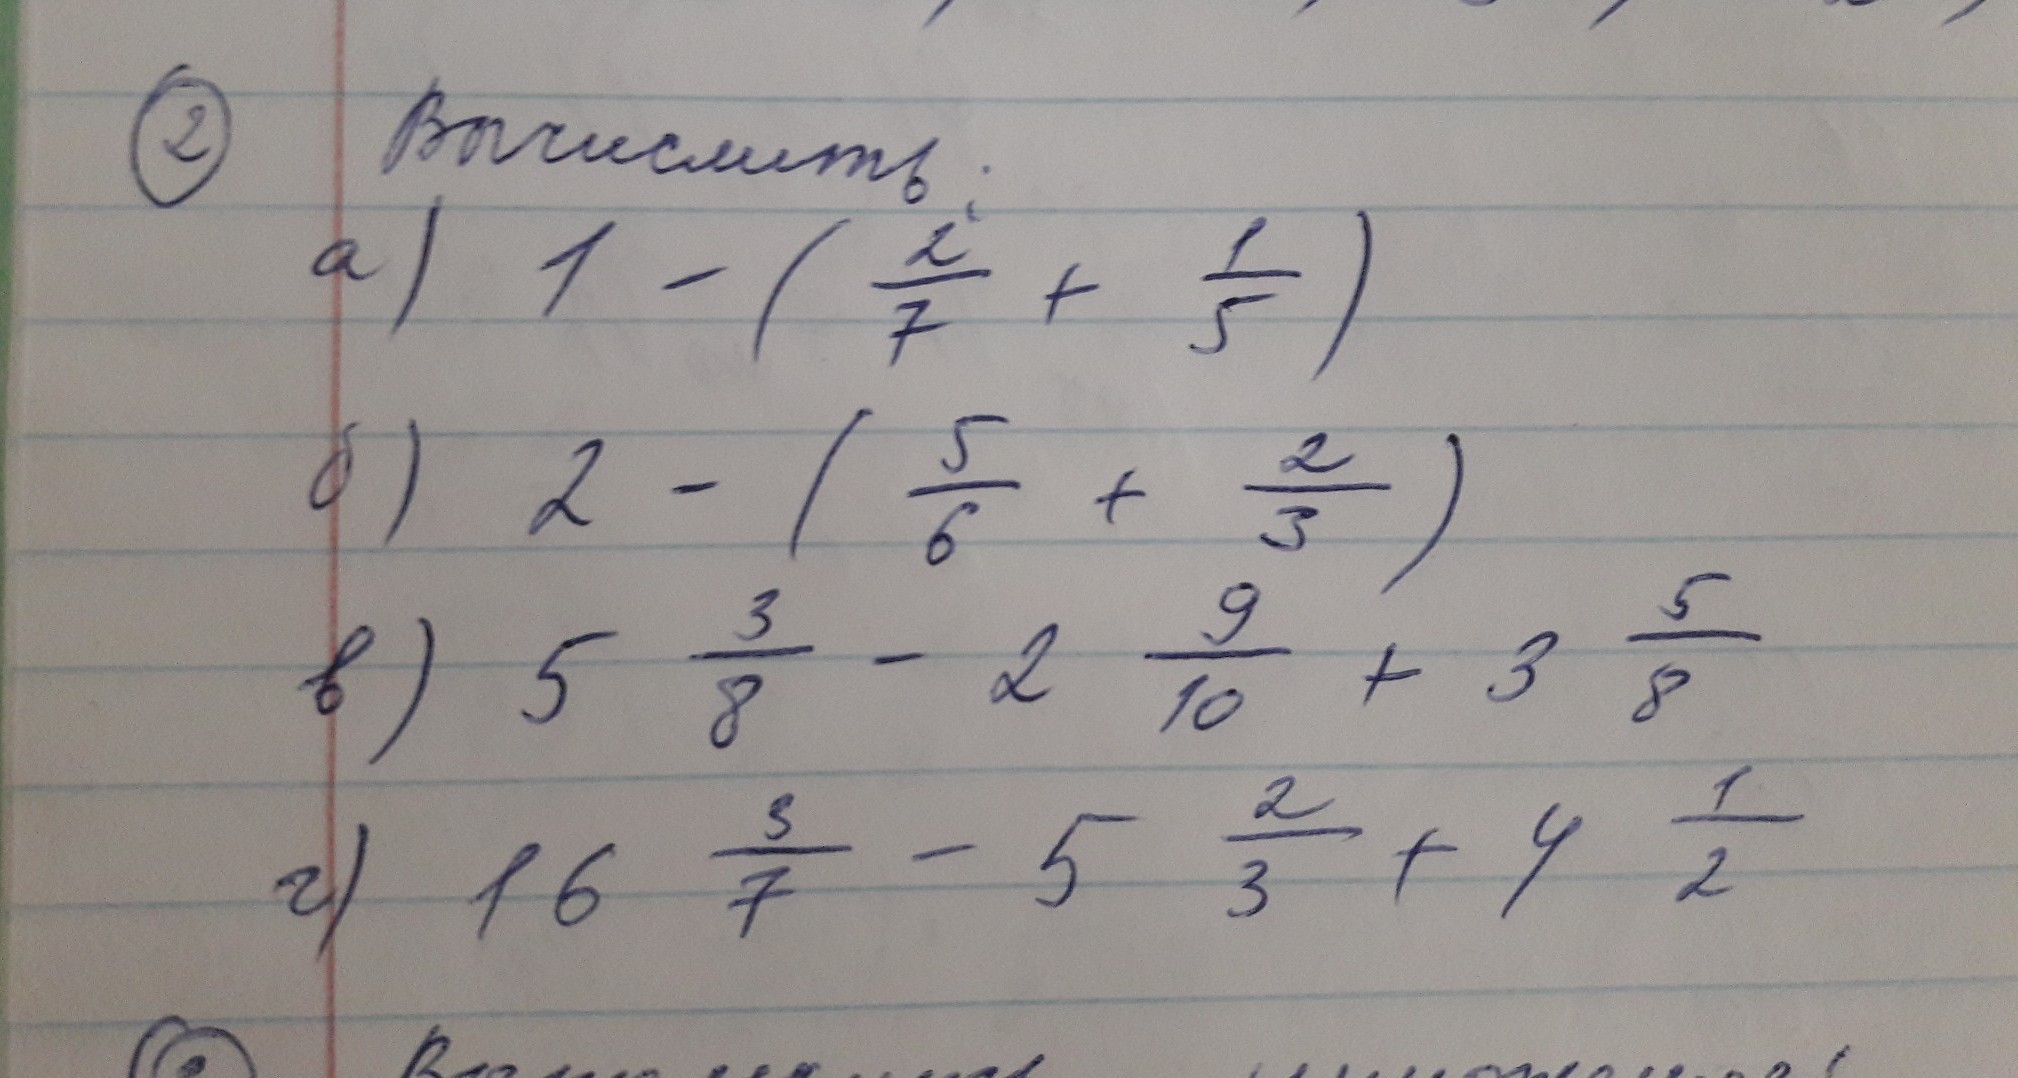 ② Вычислить:
а) 1 - (2/7 + 1/5)
б) 2 - (5/6 + 2/3)
в) 5 3/8 - 2 9/10 + 3 5/8
г) 16 3/7 - 5 2/3 + 4 1/2